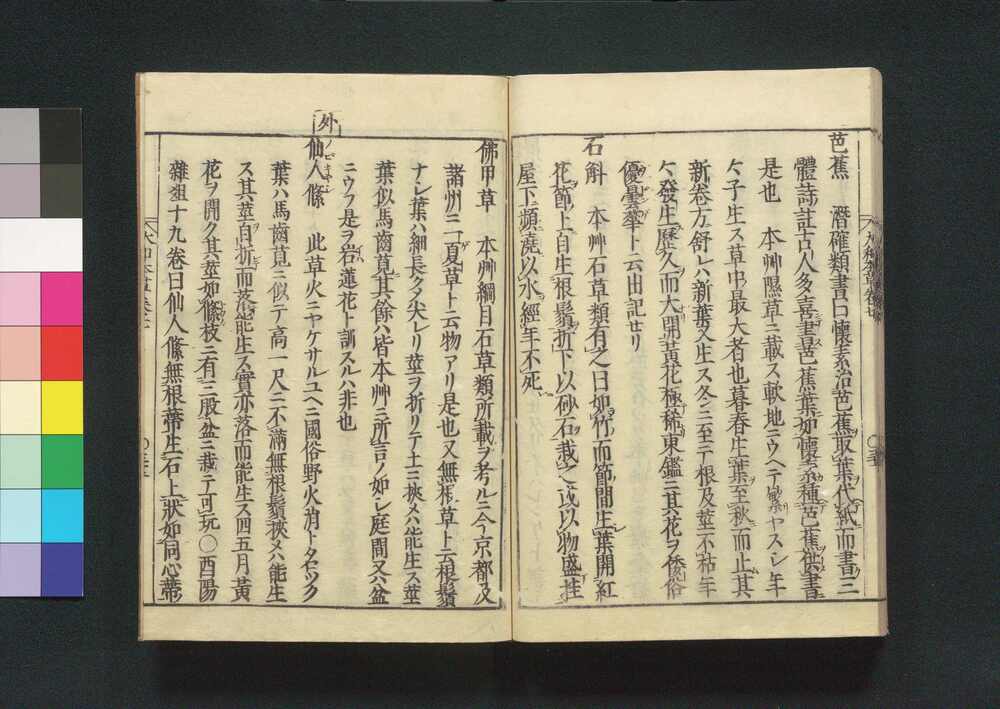 芭蕉 潛確類書曰懷素治芭蕉取葉代紙而書三
體詩註古人多喜書芭蕉葉如懷素種芭蕉供書
是也 本艸隰草ニ載ス軟地ニウヘテ繁ヤスシ年
々子生ス草中最大者也暮春生葉至秋而止其
新卷方舒レハ新葉又生ス冬ニ至テ根及莖不枯年
々發生歷久而大開黃花極稀東鑑ニ其花ヲ倭俗
優曇華ト云由記セリ
石斛 本艸石草類有之曰如竹而節間生葉開紅
花節上自生根鬚折下以砂石栽之或以物盛挂
屋下頻澆以水經年不死
佛甲草 本艸綱目石草類所載ヲ考ルニ今京都及
諸州ニ一夏草ト云物アリ是也又無根草ト云根鬚
ナシ葉ハ細長ク尖レリ莖ヲ折リテ土ニ挾メハ能生ス莖
葉似馬齒莧其餘ハ皆本艸ニ所言ノ如シ庭間又ハ盆
ニウフ是ヲ岩蓮花ト訓スルハ非也
外
仙人條 此草火ニヤケサルユヘニ國俗野火消トタヽツク
葉ハ馬齒莧ニ似テ高一尺ニ不滿無根鬚挾メハ能生
ス其莖自折而落能生ス實亦落而能生ス四五月黃
花ヲ開ク其莖如條枝ニ有三股盆ニ栽テ可玩〇酉陽
雜俎十九卷曰仙人條無根蔕生石上狀如同心蔕